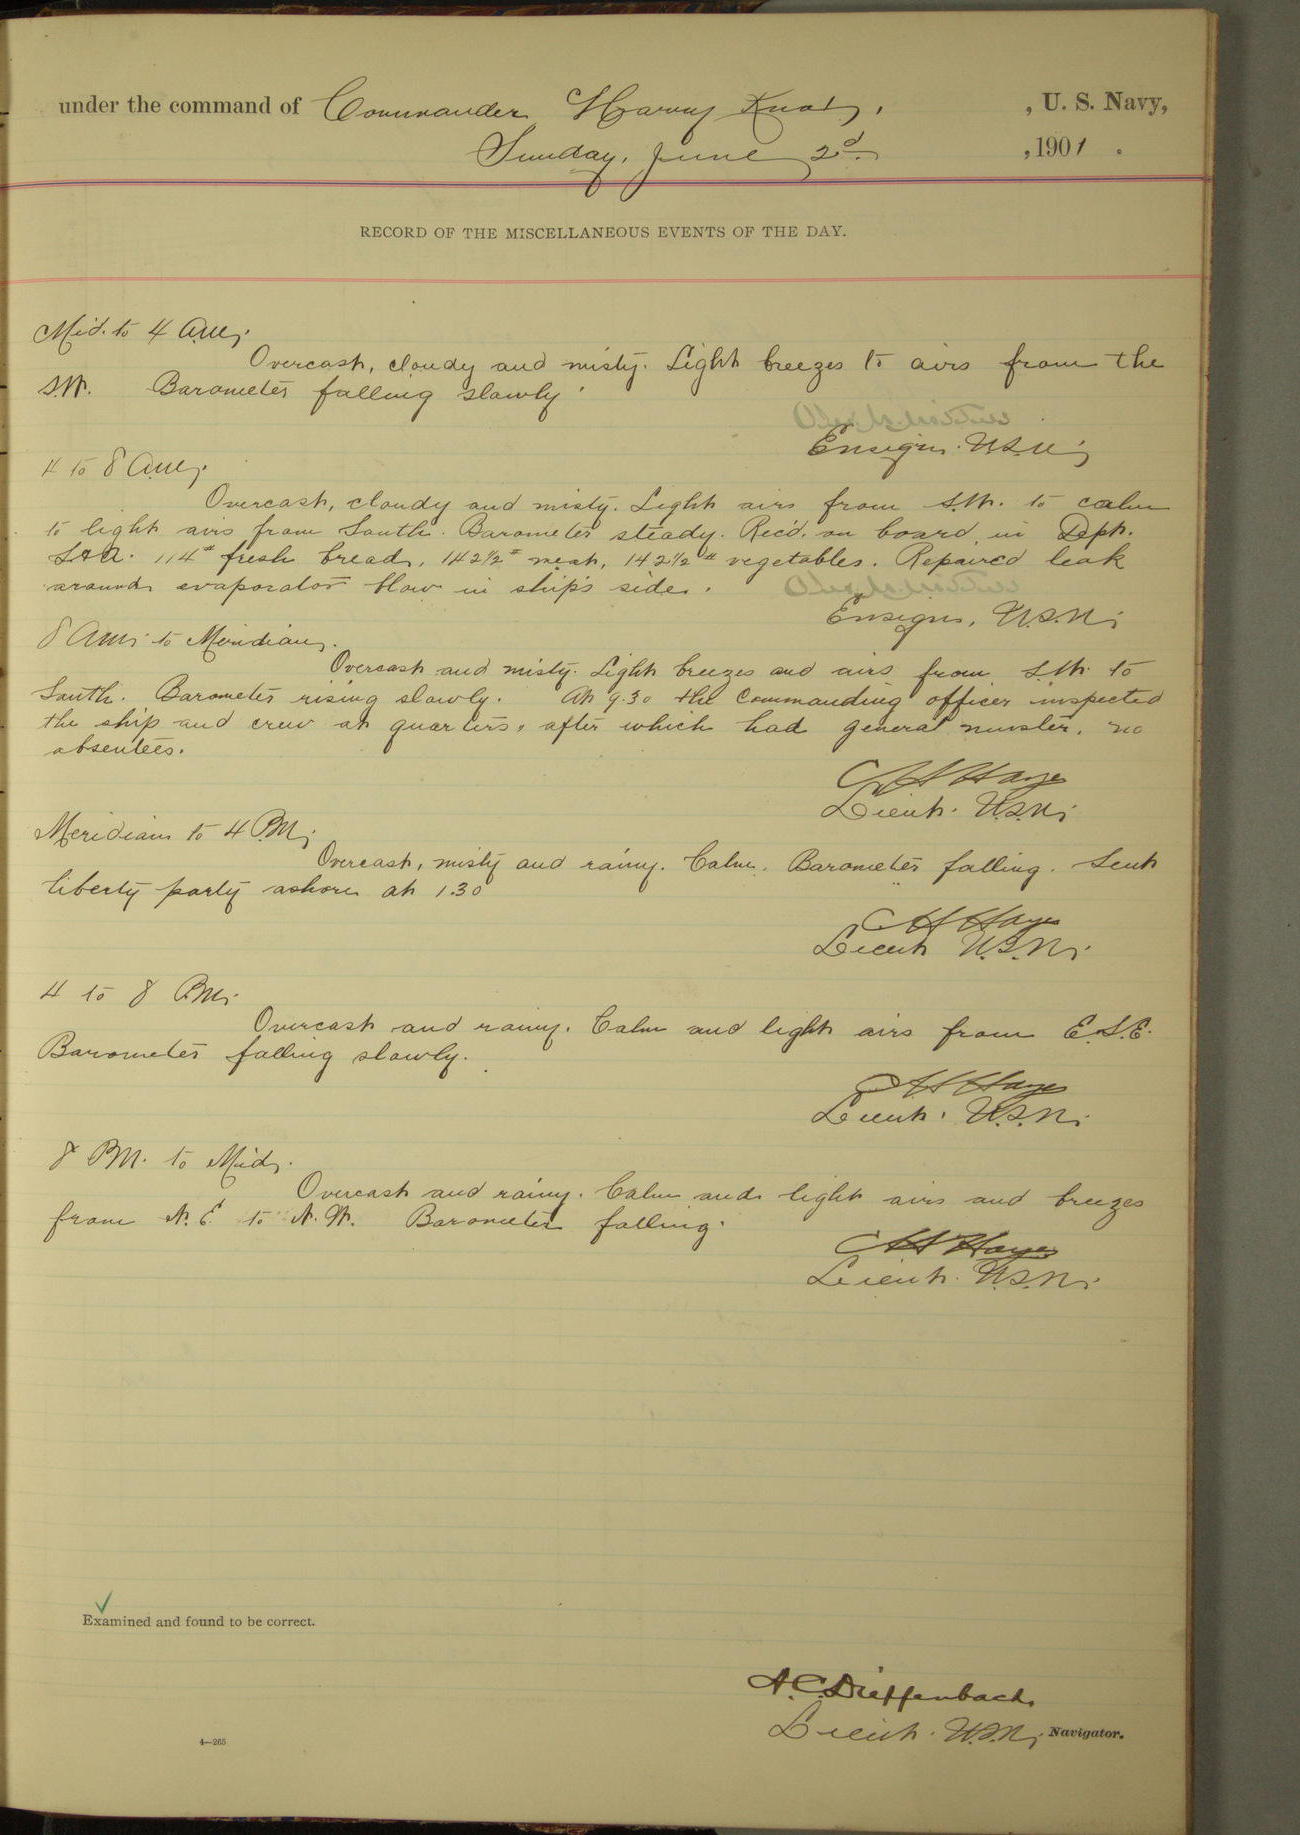 under the command of Commander Harry Knox, , U. S. Navy,
Sunday, June 2d. , 1901 .
RECORD OF THE MISCELLANEOUS EVENTS OF THE DAY.
Mid. to 4 A.M.;
Overcast, cloudy and misty. Light breezes to airs from the
S.W. Barometer falling slowly.
Ensign U.S.N.;
4 to 8 A.M.;
Overcast, cloudy and misty. Light airs from S.W. to calm
to light airs from South. Barometer steady. Rec'd. on board, in Dept.
S&A. 114# fresh bread, 142½# meat, 142½# vegetables. Repaired leak
around evaporator blow in ship's side.
Ensign, U.S.N.;
8 A.M. to Meridian.
Overcast and misty. Light breezes and airs from S.W. to
South. Barometer rising slowly. At 9.30 the Commanding officer inspected
the ship and crew at quarters, after which had general muster, no
absentees.
C H Hayes
Lieut. U.S.N.;
Meridian to 4 P.M.;
Overcast, misty and rainy. Calm. Barometer falling. Sent
liberty party ashore at 1.30
C H Hayes
Lieut U.S.N.;
4 to 8 P.M.;
Overcast and rainy. Calm and light airs from E.S.E.
Barometer falling slowly.
C H Hayes
Lieut. U.S.N.;
8 P.M. to Mid.
Overcast and rainy. Calm and light airs and breezes
from N.E. to N.W. Barometer falling.
C H Hayes
Lieut. U.S.N.;
Examined and found to be correct.
A.C. Dieffenbach
Lieut. U.S.N., Navigator.
4—265